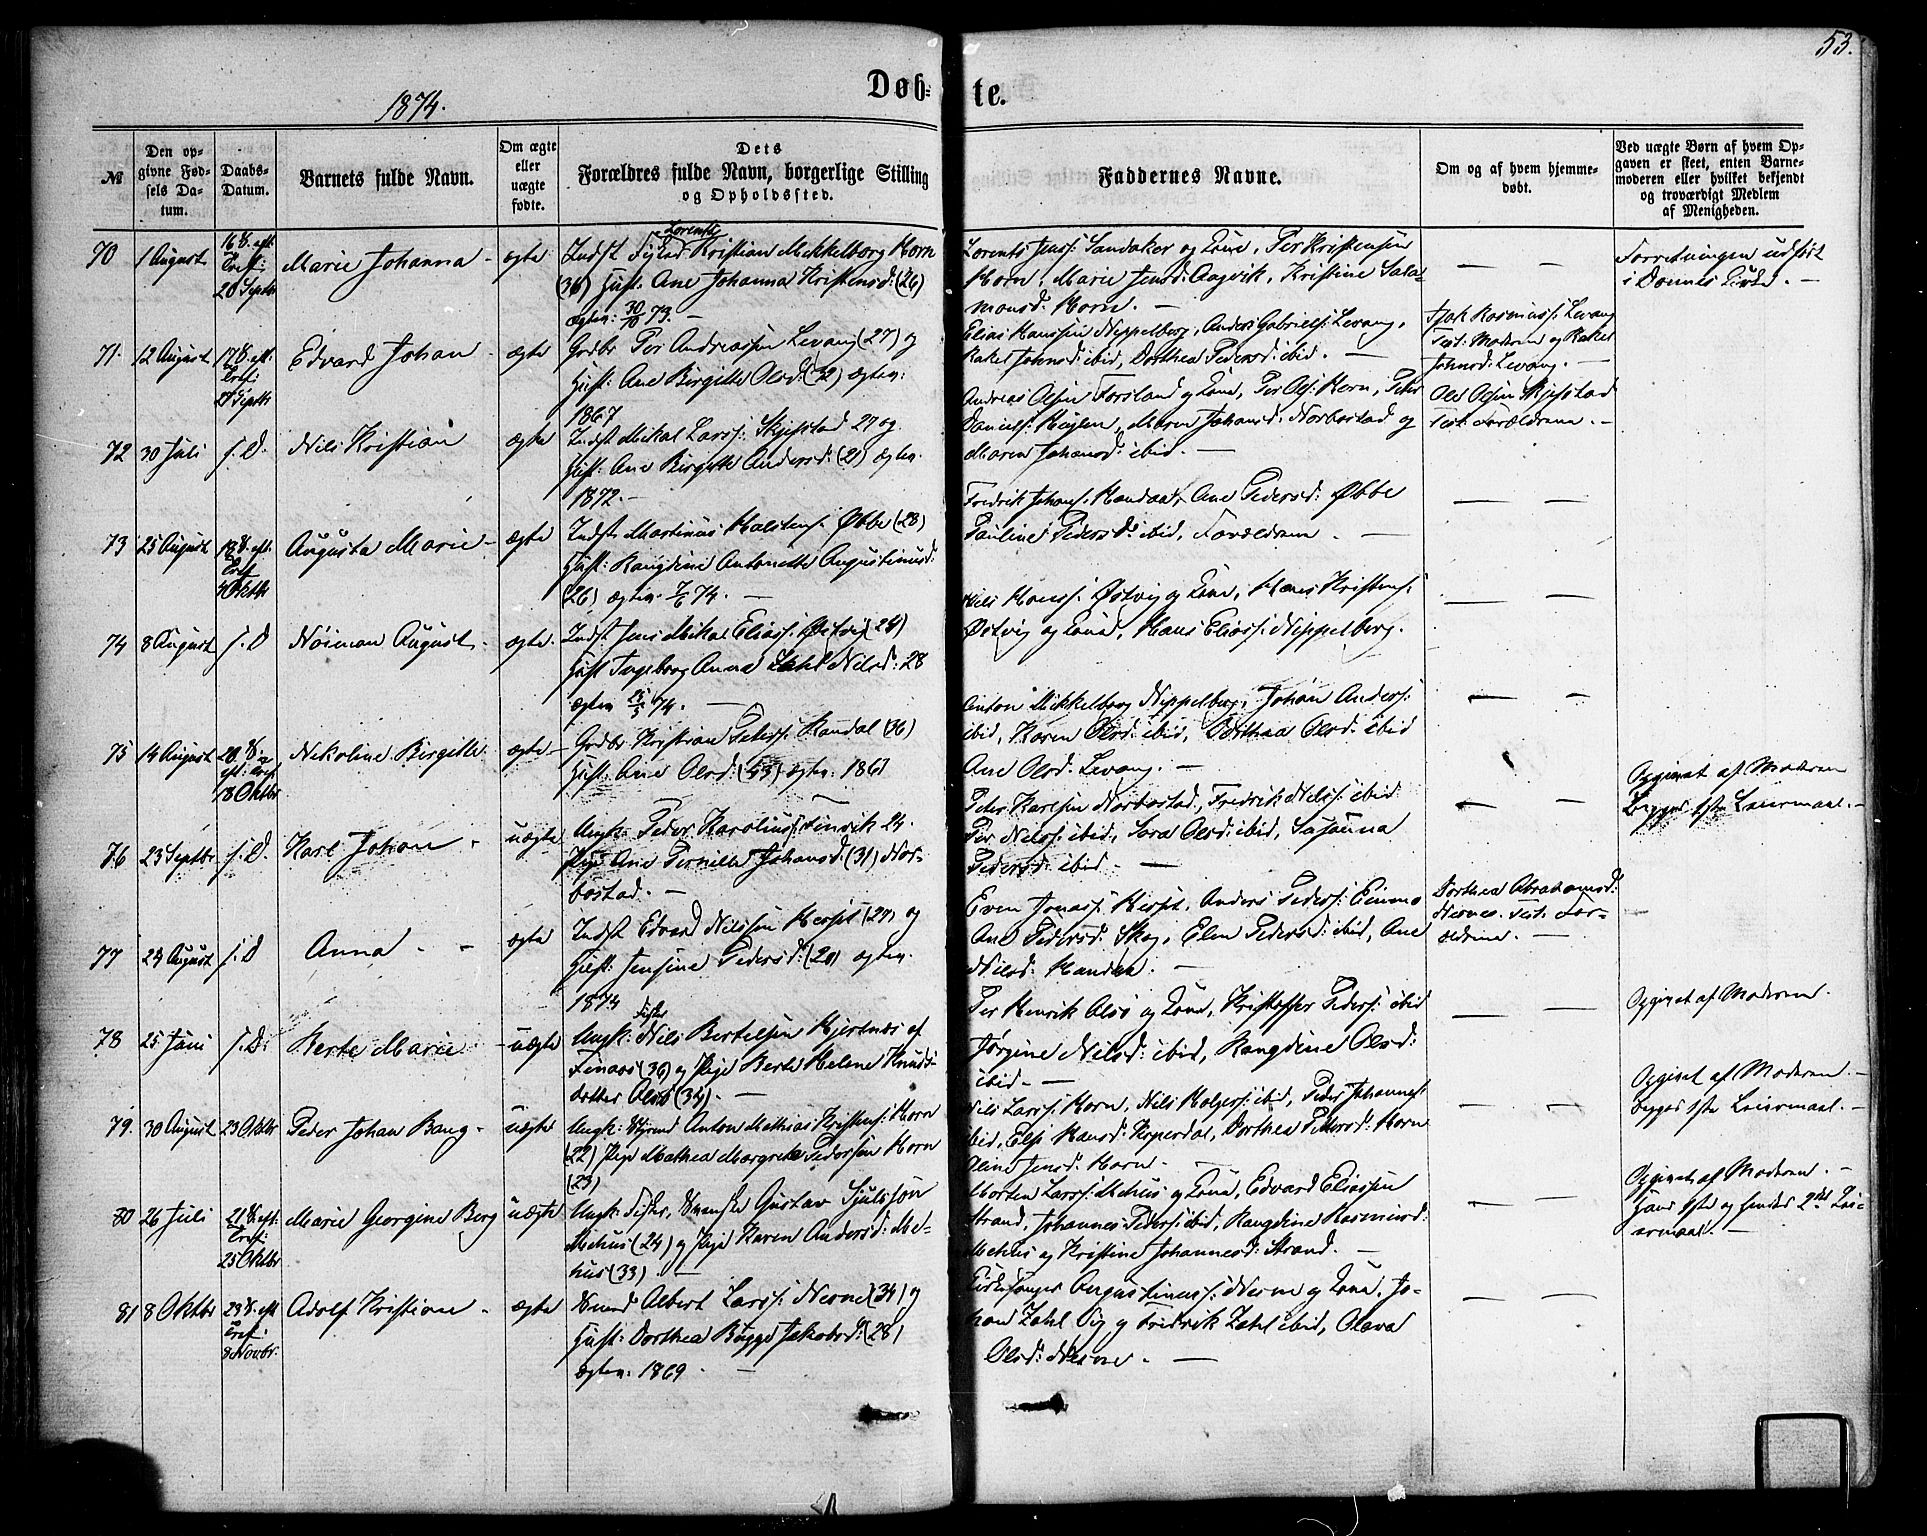 53.
Døb-
te.
1874.
№
Den op-
givne Fød-
sels Da-
tum.
Daabs-
Datum.
Barnets fulde Navn.
Om ægte
eller
uægte
fødte.
Dets
Forældres fulde Navn, borgerlige Stilling
og Opholdssted.
Faddernes Navne.
Om og af hvem hjemme-
døbt.
Ved uægte Børn af hvem Op-
gaven er skeet, enten Barne-
moderen eller hvilket bekjendt
og troværdigt Medlem
af Menigheden.
70
1 August
16 S. eft.
Tref.
20 Septbr
Marie Johanna
ægte
Lorents
Indst Kristian Mikkelborg Horn
(36) Hust. Ane Johanna Kristensd: (26)
ægtev: 30/10 73.
Lorents Jenss: Sandaker og Kone, Per Kristensen
Horn, Marie Jensd: Aagvik, Kristine Sala-
monsd: Horn.
Forretningen udført
i Dønnes Kirke.
71.
12 August
17 S. eft.
Tref:
27 Septbr
Edvard Johan
ægte
Grdbr Per Andreassen Levang (27) og
Hust: Ane Birgitte Olsd: (32) ægtev:
1867
Elias Hanssen Nippelberg, Anders Gabriels: Levang,
Rakel Johnsd: ibid, Dorthea Pedersd: ibid.
Isak Rasmuss: Levang
Test: Moderen og Rakel
Johnsd: Levang.
72
30 Juli
s. D.
Nils Kristian
ægte
Indst Mikal Larss: Skjefstad 27 og
Hust: Ane Birgitte Andersd: (21) ægtev.
1872.
Andreas Olsen Forsland og Kone, Per Ols: Horn, Peder
Daniels: Haglen, Maren Johansd: Norbostad og
Maren Johansd: ibid.
Ole Olsen Skjefstad
Test: Forældrene.
73
25 August
18 S. eft.
Tref.
4 Oktbr
Augusta Marie
ægte
Indst Martinus Halstens: Øbbe (28)
Hust: Rangdine Antonette Augustinusd:
(26) ægtev. 7/6 74.
Fredrik Johans: Handaa, Ane Pedersd: Øbbe
Pauline Pedersd: ibid, Forældrene.
74
8 August
s. D
Nøiman August
ægte
Indst Jens Mikal Eliass: Østvig (28)
Hust Ingeborg Anna Nilsd: 28
ægtev 25/5 74.
Nils Hanss: Østvig og Kone, Hans Kristens:
Østvig og Kone, Hans Eliass: Nippelberg.
75
14 August
20 S.
eft: Tref.
18 Oktbr
Nikoline Birgitte
ægte
Grdbr Kristian Peters: Randal (36)
Hust: Ane Olsd: ægtev: 1867
Anton Mikkelborg Nippelberg, Johan Anders:
ibid, Karen Olsd: ibid, Dorthea Olsd: ibid
Ane Olsd: Levang.
76
23 Septbr
s. D.
Karl Johan
uægte
Ungk: Peder Karoliuss: Finvik 24.
Pige Ane Pernille Johansd: (31) Nor-
bostad.
Peter Karlsen Norbostad, Fredrik Nilss: ibid
Per Nilss: ibid, Sara Olsd: ibid, Susanna
Pedersd: ibid
Opgivet af Moderen
Begges 1ste Leiermaal.
77
24 August
s. D
Anna
ægte
Indst Edvard Nilssen Hespt (27) og
Hust: Jensine Pedersd: (20) ægtev.
1874
Even Jonass: Hespt, Anders Peders:
Ane Pedersd: Skog, Elen Pedersd: ibid, Ane
Nilsd:
Dorthea Abrahamsd:
Nesnes. Test. For-
ældrene.
78
25 Juni
s. D.
Berte Marie
uægte
Fisker
Ungk: Nils Bertelsen Hjertnæs af
(36) og Pige Berte Helene Knuds-
datter Alsø (34).
Per Henrik Alsø og Kone, Kristoffer Peders: ibid
Jørgine Nilsd: ibid, Rangdine Olsd:
ibid.
Opgivet af Moderen.
79.
30 August
25 Oktbr
Peder Johan Bang
uægte
Ungk: Anton Mathias Kristens: Horn
(22) Pige Mathea Margrete Pedersen Horn
(23)
Nils Larss: Horn, Nils Holgers: ibid, Peder Johannes:
ibid, Else Hansd: Koperdal, Dorthea Petersd: Horn
Jensd: Horn.
Opgivet af Moderen.
begges 1ste Leiermaal.
80
26 Juli
21 S. eft.
Tref:
25 Oktbr
Marie Georgine Berg
uægte
Ungk: Fisker, Svenske Gustav
Mehus (24) og Pige Karen Andersd: Me-
hus (33)
Morten Larss: Mehus og Kone, Edvard Eliassen
Strand, Johannes Peders: ibid, Rangdine Rasmusd:
Mehus og Kristine Johannesd: Strand.
Opgivet af Moderen.
Hans 1ste og hendes 2det Lei-
ermaal.
81
8 Oktbr
23 S. eft
Tref:
8 Novbr.
Adolf Kristian
ægte
Albert Larss: Nesne (34) og
Hust: Dorthea Bugge Jakobsd: (28)
ægtev: 1869
Kirkesanger Augustinuss: Nesne og Kone, Jo-
han Zahl Sig og Fredrik Zahl ibid, Olava
Olsd: Nesne.